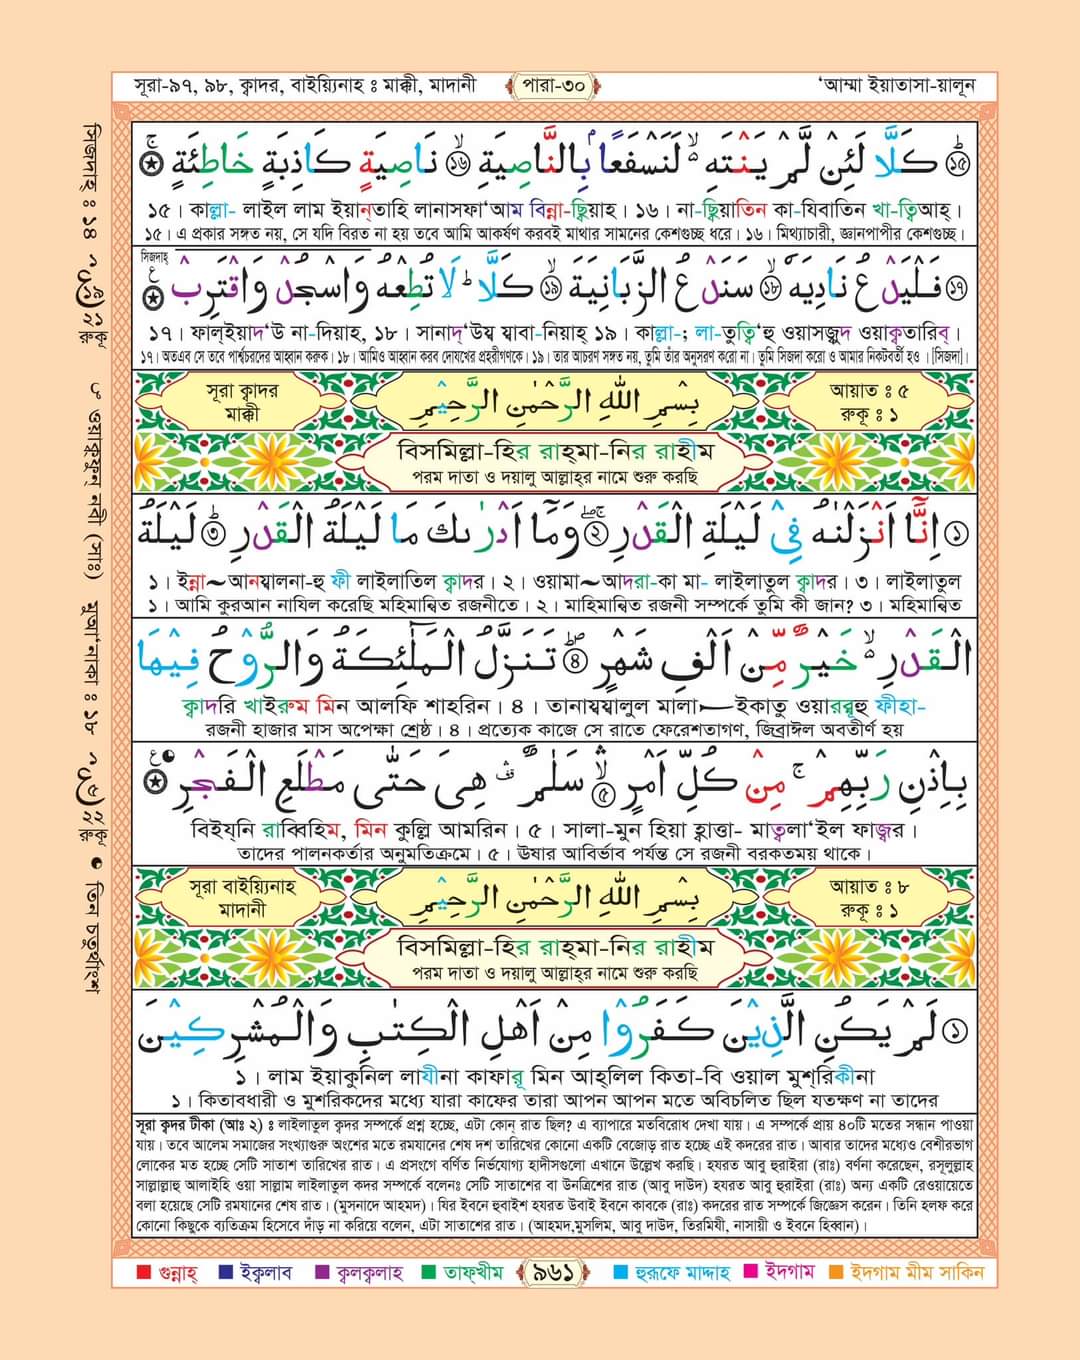 সূরা-৯৭, ৯৮, ক্বাদর, বাইয়্যিনাহ ঃ মাক্কী, মাদানী
পারা-৩০
‘আম্মা ইয়াতাসা-য়ালূন
۝১৫ كَلَّا لَئِنْ لَّمْ يَنْتَهِ ۙ لَنَسْفَعًۢا بِالنَّاصِيَةِ ۝১৬ نَاصِيَةٍ كَاذِبَةٍ خَاطِئَةٍ ۚ
১৫। কাল্লা- লাইল লাম ইয়ান্‌তাহি লানাসফা‘আম বিন্না-ছ্বিয়াহ। ১৬। না-ছ্বিয়াতিন কা-যিবাতিন খা-ত্বিআহ্।
১৫। এ প্রকার সঙ্গত নয়, সে যদি বিরত না হয় তবে আমি আকর্ষণ করবই মাথার সামনের কেশগুচ্ছ ধরে। ১৬। মিথ্যাচারী, জ্ঞানপাপীর কেশগুচ্ছ।
۝১৭ فَلْيَدْعُ نَادِيَهٗ ۝১৮ سَنَدْعُ الزَّبَانِيَةَ ۝১৯ كَلَّا ؕ لَا تُطِعْهُ وَاسْجُدْ وَاقْتَرِبْ
সিজদাহ্
১৭। ফাল্‌ইয়াদ‘উ না-দিয়াহ, ১৮। সানাদ্‘উয্ব য্বাবা-নিয়াহ্ ১৯। কাল্লা-; লা-তুত্বি‘হু ওয়াসজুদ ওয়াক্বতারিব্।
১৭। অতএব সে তবে পার্শ্বচরদের আহ্বান করুক। ১৮। আমিও আহ্বান করব দোযখের প্রহরীগণকে। ১৯। তার আচরণ সঙ্গত নয়, তুমি তাঁর অনুসরণ করো না। তুমি সিজদা করো ও আমার নিকটবর্তী হও । [সিজদা]।
সূরা ক্বাদর
মাক্কী
بِسْمِ اللّٰهِ الرَّحْمٰنِ الرَّحِيْمِ
আয়াত ঃ ৫
রুকূ ঃ ১
বিসমিল্লা-হির রাহ্‌মা-নির রাহীম
পরম দাতা ও দয়ালু আল্লাহ্‌র নামে শুরু করছি
۝১ اِنَّاۤ اَنْزَلْنٰهُ فِيْ لَيْلَةِ الْقَدْرِ ۝২ وَمَاۤ اَدْرٰىكَ مَا لَيْلَةُ الْقَدْرِ ۝৩ لَيْلَةُ
১। ইন্না~আনয্বালনা-হু ফী লাইলাতিল ক্বাদর। ২। ওয়ামা~আদরা-কা মা- লাইলাতুল ক্বাদর। ৩। লাইলাতুল
১। আমি কুরআন নাযিল করেছি মহিমান্বিত রজনীতে। ২। মাহিমান্বিত রজনী সম্পর্কে তুমি কী জান? ৩। মহিমান্বিত
الْقَدْرِ ۙ خَيْرٌ مِّنْ اَلْفِ شَهْرٍ ۝৪ تَنَزَّلُ الْمَلٰٓئِكَةُ وَالرُّوْحُ فِيْهَا
ক্বাদরি খাইরুম মিন আলফি শাহরিন। ৪। তানায্বয্বালুল মালা~ইকাতু ওয়াররূহু ফীহা-
রজনী হাজার মাস অপেক্ষা শ্রেষ্ঠ। ৪। প্রত্যেক কাজে সে রাতে ফেরেশতাগণ, জিব্রাঈল অবতীর্ণ হয়
بِاِذْنِ رَبِّهِمْ ۚ مِنْ كُلِّ اَمْرٍ ۝৫ سَلٰمٌ هِيَ حَتّٰى مَطْلَعِ الْفَجْرِ
বিইয্‌নি রাব্বিহিম, মিন কুল্লি আমরিন। ৫। সালা-মুন হিয়া হ্বাত্তা- মাত্বলা‘ইল ফাজ্বর।
তাদের পালনকর্তার অনুমতিক্রমে। ৫। ঊষার আবির্ভাব পর্যন্ত সে রজনী বরকতময় থাকে।
সূরা বাইয়্যিনাহ
মাদানী
بِسْمِ اللّٰهِ الرَّحْمٰنِ الرَّحِيْمِ
আয়াত ঃ ৮
রুকূ ঃ ১
বিসমিল্লা-হির রাহ্‌মা-নির রাহীম
পরম দাতা ও দয়ালু আল্লাহ্‌র নামে শুরু করছি
۝১ لَمْ يَكُنِ الَّذِيْنَ كَفَرُوْا مِنْ اَهْلِ الْكِتٰبِ وَالْمُشْرِكِيْنَ
১। লাম ইয়াকুনিল লাযীনা কাফারূ মিন আহ্‌লিল কিতা-বি ওয়াল মুশ্‌রিকীনা
১। কিতাবধারী ও মুশরিকদের মধ্যে যারা কাফের তারা আপন আপন মতে অবিচলিত ছিল যতক্ষণ না তাদের
সূরা ক্বদর টীকা (আঃ ২) ঃ লাইলাতুল ক্বদর সম্পর্কে প্রশ্ন হচ্ছে, এটা কোন্ রাত ছিল? এ ব্যাপারে মতবিরোধ দেখা যায়। এ সম্পর্কে প্রায় ৪০টি মতের সন্ধান পাওয়া
যায়। তবে আলেম সমাজের সংখ্যাগুরু অংশের মতে রমযানের শেষ দশ তারিখের কোনো একটি বেজোড় রাত হচ্ছে এই কদরের রাত। আবার তাদের মধ্যেও বেশীরভাগ
লোকের মত হচ্ছে সেটি সাতাশ তারিখের রাত। এ প্রসংগে বর্ণিত নির্ভযোগ্য হাদীসগুলো এখানে উল্লেখ করছি। হযরত আবু হুরাইরা (রাঃ) বর্ণনা করেছেন, রসূলুল্লাহ
সাল্লাল্লাহু আলাইহি ওয়া সাল্লাম লাইলাতুল কদর সম্পর্কে বলেনঃ সেটি সাতাশের বা উনত্রিশের রাত (আবু দাউদ) হযরত আবু হুরাইরা (রাঃ) অন্য একটি রেওয়ায়েতে
বলা হয়েছে সেটি রমযানের শেষ রাত। (মুসনাদে আহমদ)। যির ইবনে হুবাইশ হযরত উবাই ইবনে কাবকে (রাঃ) কদরের রাত সম্পর্কে জিজ্ঞেস করেন। তিনি হলফ করে
কোনো কিছুকে ব্যতিক্রম হিসেবে দাঁড় না করিয়ে বলেন, এটা সাতাশের রাত। (আহমদ,মুসলিম, আবু দাউদ, তিরমিযী, নাসায়ী ও ইবনে হিব্বান)।
গুন্নাহ্
ইক্বলাব
ক্বলক্বলাহ
তাফ্‌খীম
৯৬১
হুরূফে মাদ্দাহ্
ইদগাম
ইদগাম মীম সাকিন
সিজদাহ্ ঃ ১৪
৮ ওয়াকুফুন্ নবী (সাঃ)
মুআ‘নাকা ঃ ১৮
তিন চতুর্থাংশ